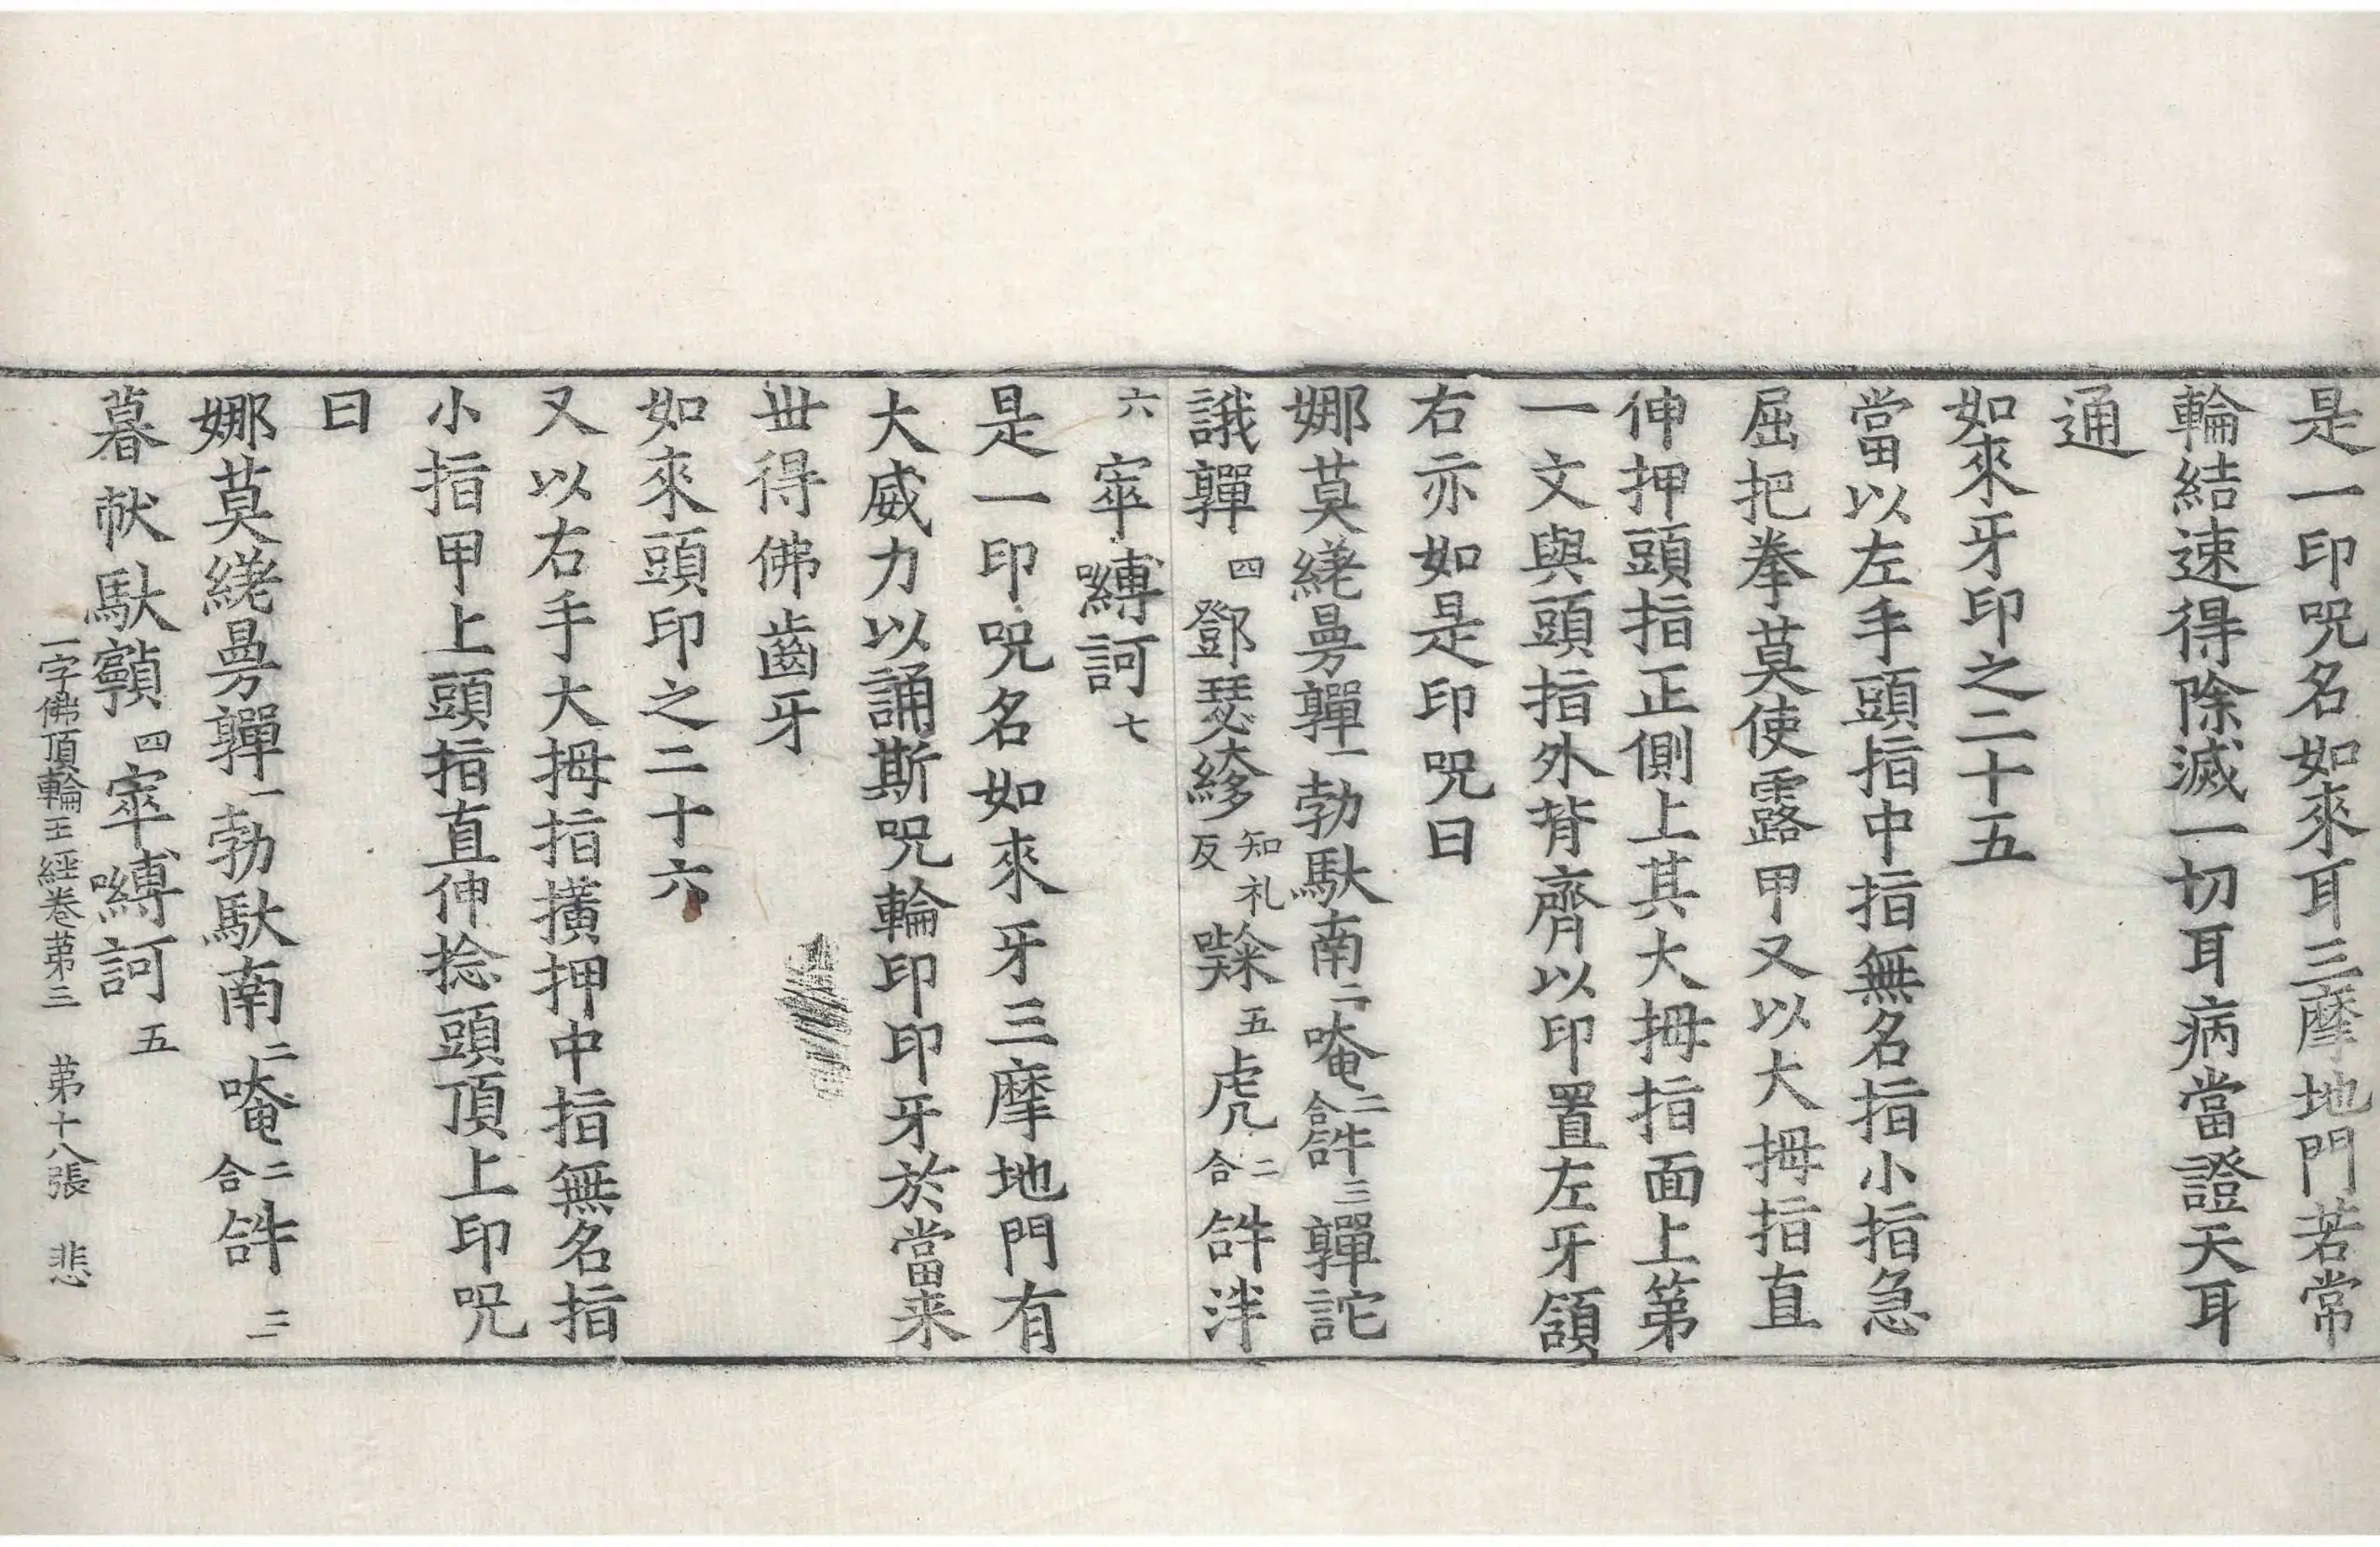 是一印呪名如來耳三摩地門若常
輪結速得除滅一切耳病當證天耳
通
如來牙印之二十五
當以左手頭指中指無名指小指急
屈把拳莫使露甲又以大拇指直
伸押頭指正側上其大拇指面上第
一文與頭指外背齊以印置左牙頷
右亦如是印呪曰
娜莫繞曼嚲一勃馱南二唵二合𤙖三嚲詑
誐嚲四鄧瑟知礼反五虎二合𤙖泮
六窣嚩訶七
是一印呪名如來牙三摩地門有
大威力以誦斯呪輪印印牙於當来
丗得佛齒牙
如來頭印之二十六
又以右手大拇指撗押中指無名指
小指甲上頭指直伸捻頭頂上印呪
曰
娜莫繞曼嚲一勃馱南二唵二合𤙖三
暮馱四窣嚩訶五
一字佛頂輪王經卷苐三 苐十八張 悲